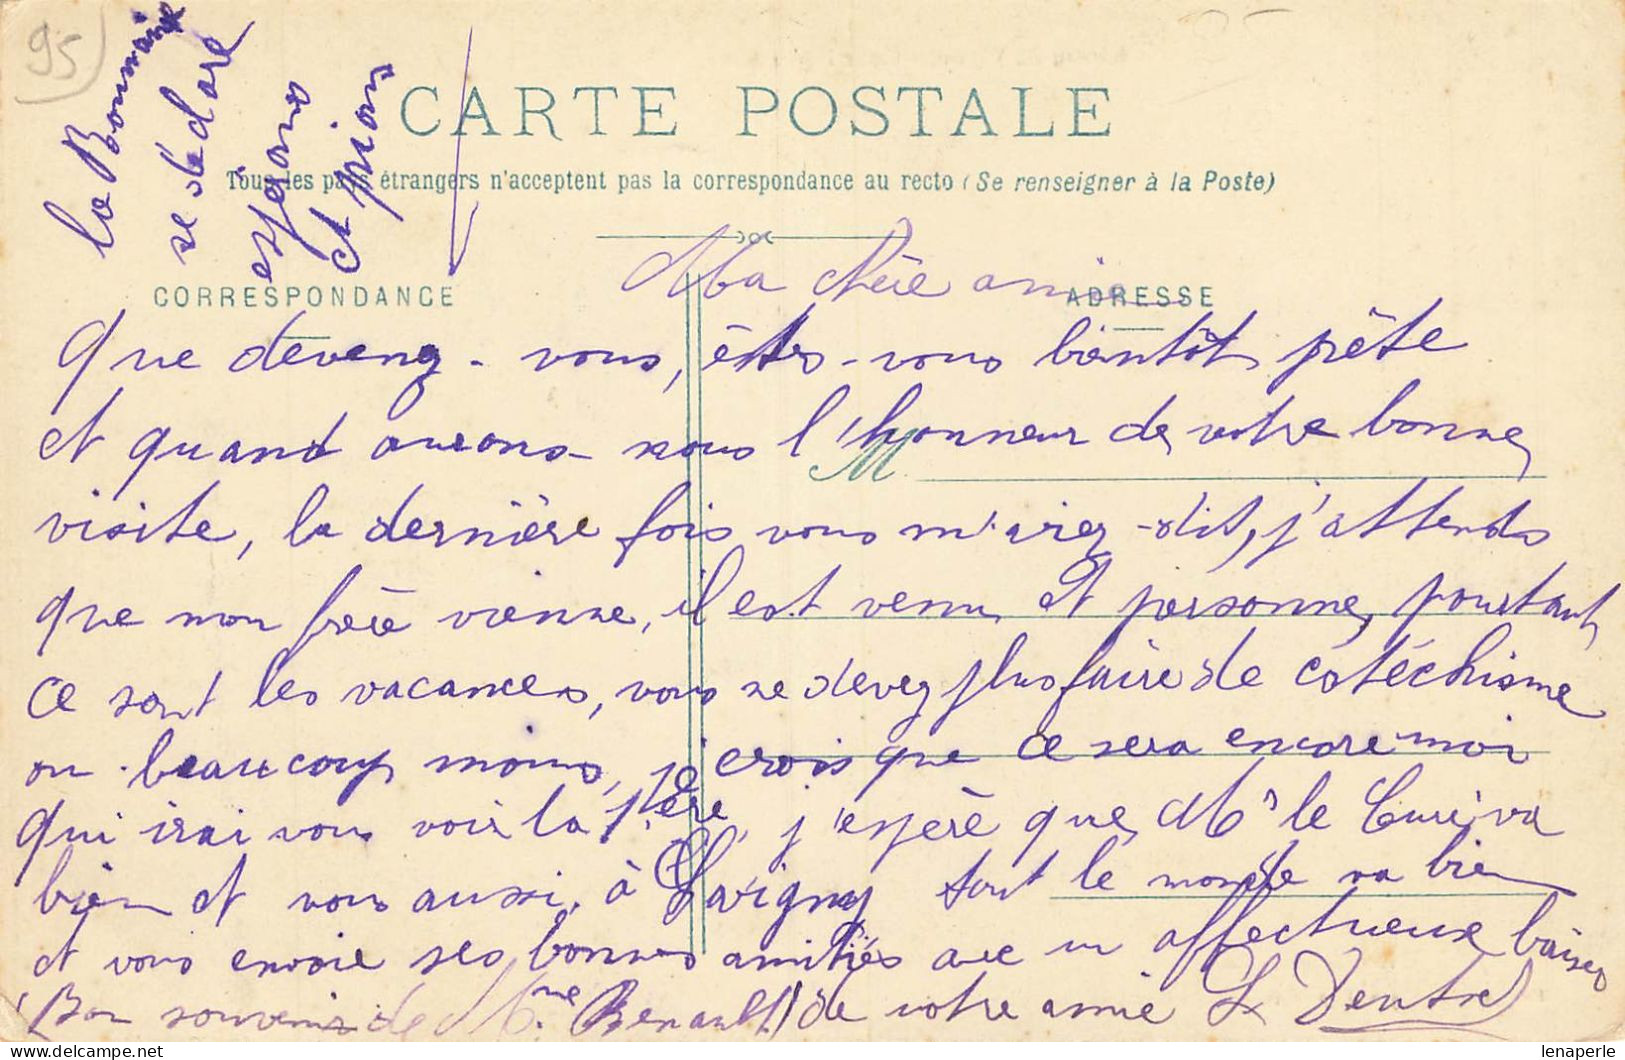 95
la Bonnaire
se déclare
espérons
et prions
CARTE POSTALE
Tous les pays étrangers n'acceptent pas la correspondance au recto (Se renseigner à la Poste)
CORRESPONDANCE
ADRESSE
Ma chère amie
Que devenez-vous, êtes-vous bientôt prête
et quand aurons-nous l'honneur de votre bonne
M
visite, la dernière fois vous m'aviez-dit, j'attends
que mon frère vienne, il est venu et personne, pourtant
ce sont les vacances, vous ne devez plus faire de catéchisme
ou beaucoup moins, je crois que ce sera encore moi
qui irai vous voir la 1ère, j'espère que Mr le Curé va
bien et vous aussi, à Savigny tout le monde va bien
et vous envoie ses bonnes amitiés avec un affectueux baiser
(Bon souvenir de Mme Renault) de votre amie L Dentre
lenaperle